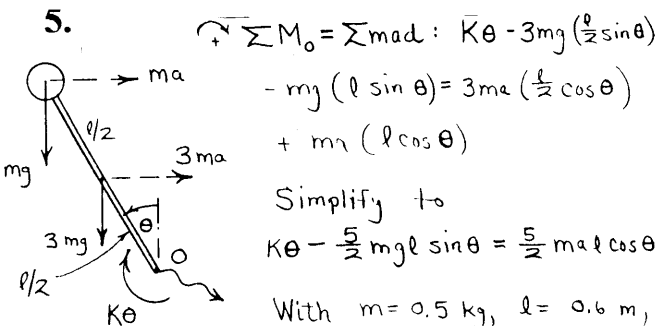 5.
↷+ ΣMₒ = Σmad : Kθ - 3mg (l/2 sinθ)
- mg (l sin θ) = 3ma (l/2 cosθ)
+ ma (l cos θ)
Simplify to
Kθ - 5/2 mgl sinθ = 5/2 mal cosθ
With m = 0.5 kg, l = 0.6 m,
ma
l/2
mg
3ma
θ
3mg
O
l/2
Kθ